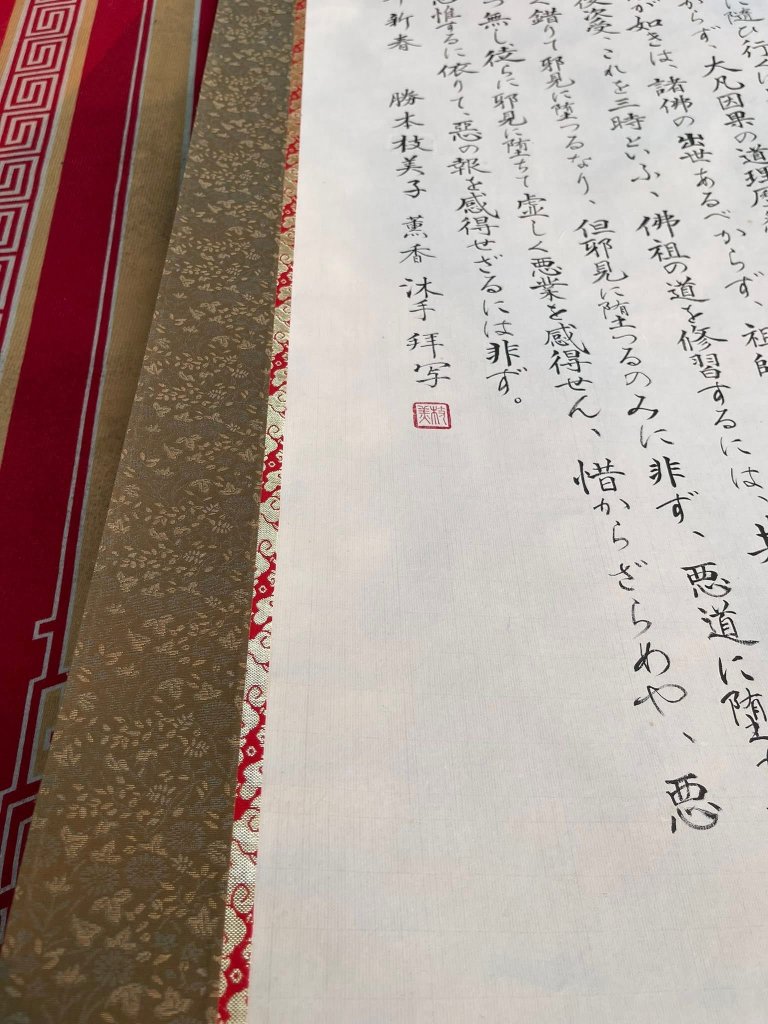 に随ひ行くは
からず、大凡因果の道理歴
が如きは、諸佛の出世あるべからず、祖師
後次受、これを三時といふ、佛祖の道を修習するには、其
く錯りて邪見に堕つるなり、但邪見に堕つるのみに非ず、悪道に堕
無し徒らに邪見に堕ちて虚しく悪業を感得せん、惜からざらめや、悪
思惟するに依りて、惡の報を感得せざるには非ず。
新春 勝木枝美子 薫香 沐手 拝写
枝美